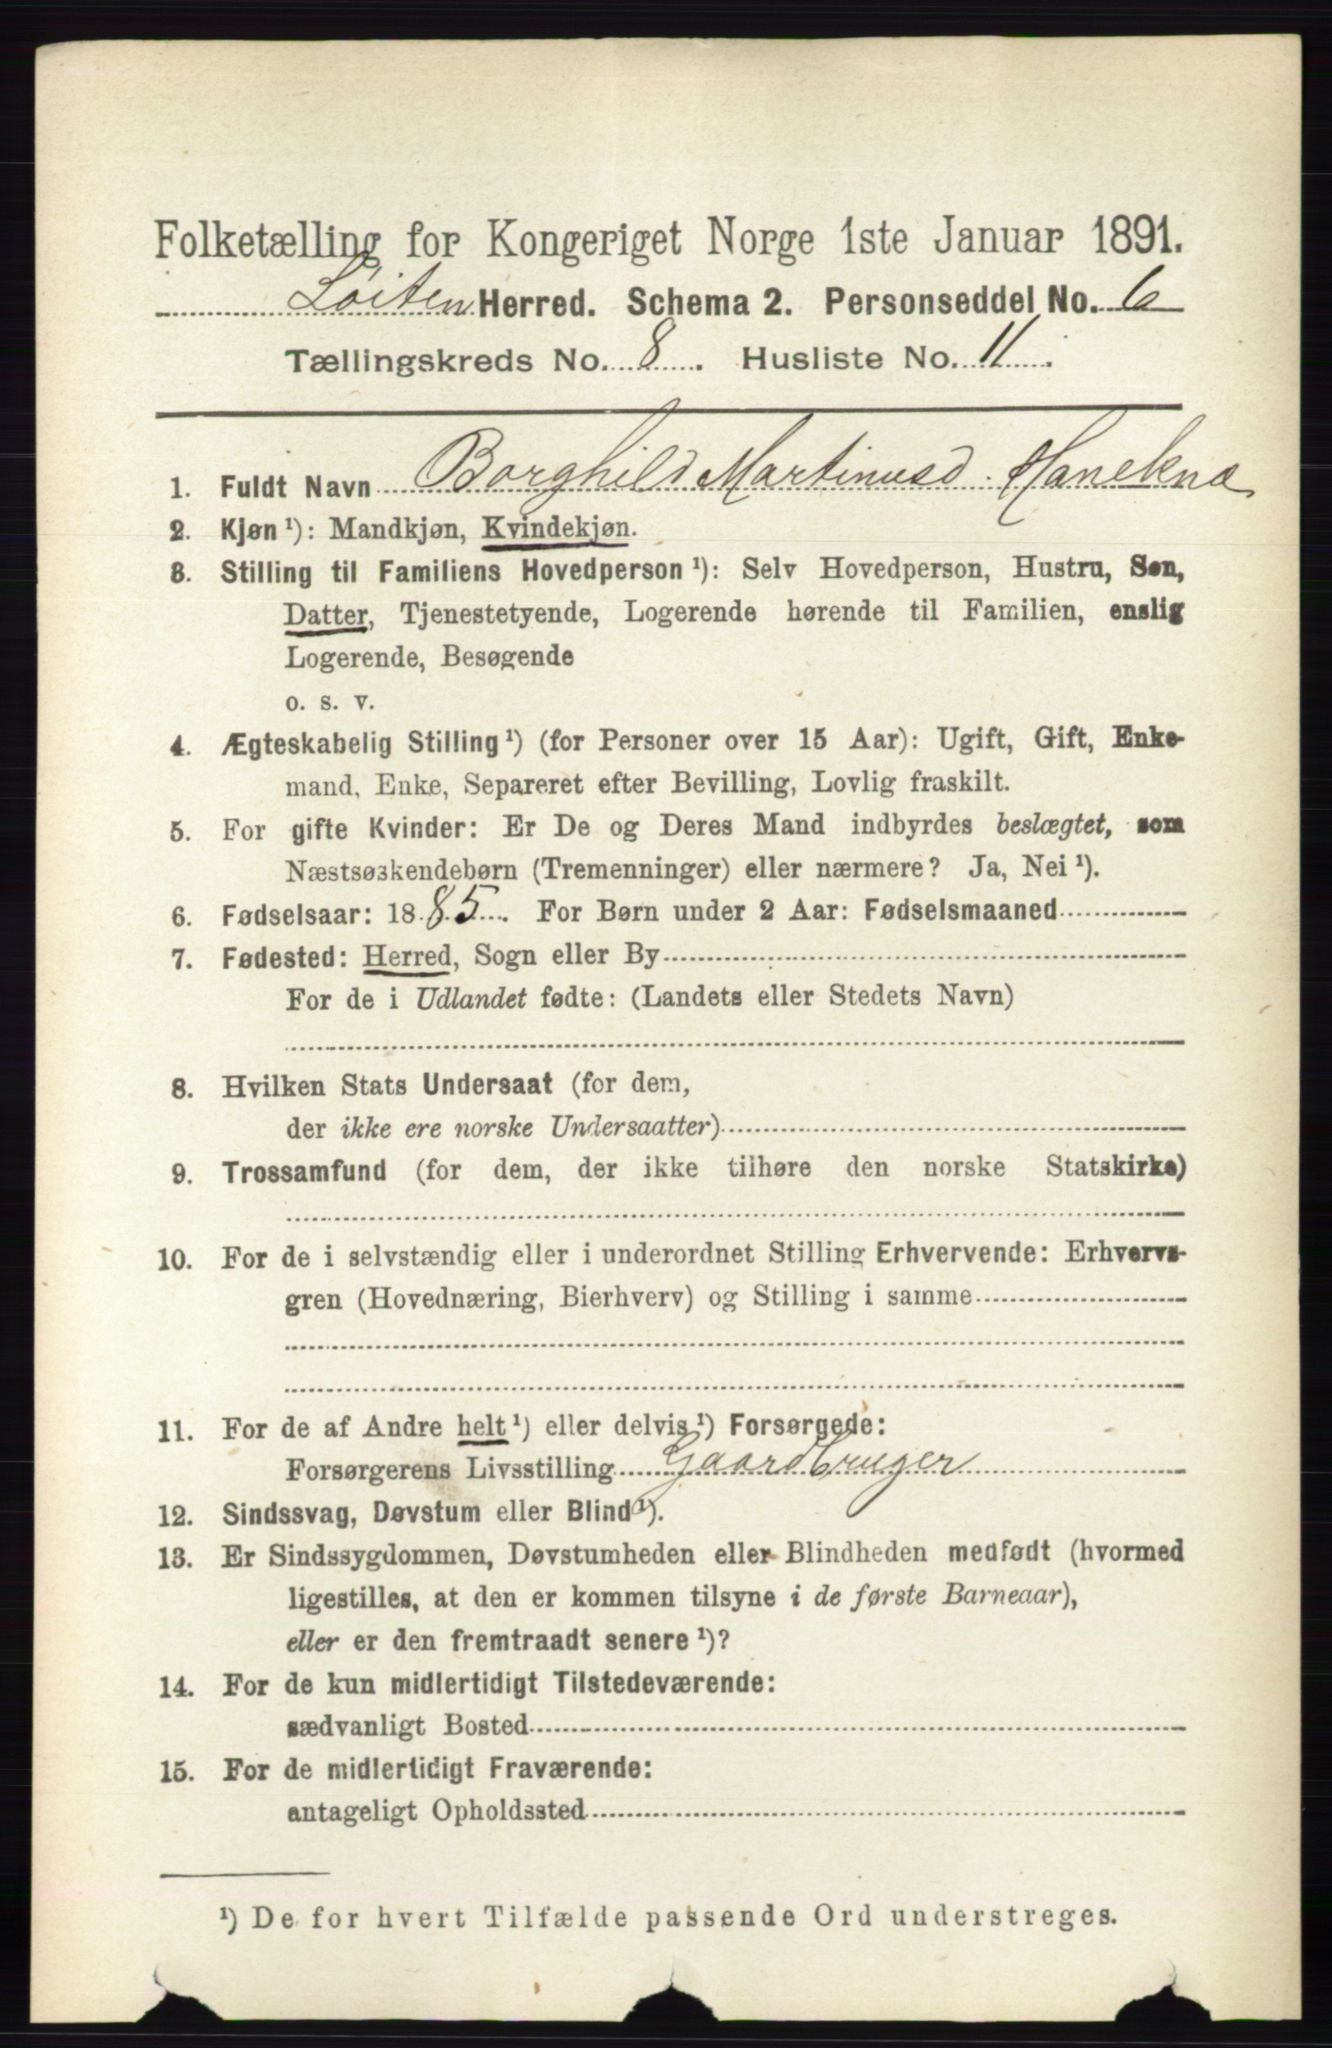 Folketælling for Kongeriget Norge 1ste Januar 1891.
Løiten Herred. Schema 2. Personseddel No. 6
Tællingskreds No. 8. Husliste No. 11.
1. Fuldt Navn Borghild Martinusd. Hanekna
2. Kjøn ¹): Mandkjøn, Kvindekjøn.
3. Stilling til Familiens Hovedperson ¹): Selv Hovedperson, Hustru, Søn,
Datter, Tjenestetyende, Logerende hørende til Familien, enslig
Logerende, Besøgende
o. s. v.
4. Ægteskabelig Stilling ¹) (for Personer over 15 Aar): Ugift, Gift, Enke-
mand, Enke, Separeret efter Bevilling, Lovlig fraskilt.
5. For gifte Kvinder: Er De og Deres Mand indbyrdes beslægtet, som
Næstsøskendebørn (Tremenninger) eller nærmere? Ja, Nei ¹).
6. Fødselsaar: 1885. For Børn under 2 Aar: Fødselsmaaned
7. Fødested: Herred, Sogn eller By
For de i Udlandet fødte: (Landets eller Stedets Navn)
8. Hvilken Stats Undersaat (for dem,
der ikke ere norske Undersaatter)
9. Trossamfund (for dem, der ikke tilhøre den norske Statskirke)
10. For de i selvstændig eller i underordnet Stilling Erhvervende: Erhvervs-
gren (Hovednæring, Bierhverv) og Stilling i samme
11. For de af Andre helt ¹) eller delvis ¹) Forsørgede:
Forsørgerens Livsstilling Gaardbruger
12. Sindssvag, Døvstum eller Blind ¹).
13. Er Sindssygdommen, Døvstumheden eller Blindheden medfødt (hvormed
ligestilles, at den er kommen tilsyne i de første Barneaar),
eller er den fremtraadt senere ¹)?
14. For de kun midlertidigt Tilstedeværende:
sædvanligt Bosted
15. For de midlertidigt Fraværende:
antageligt Opholdssted
¹) De for hvert Tilfælde passende Ord understreges.